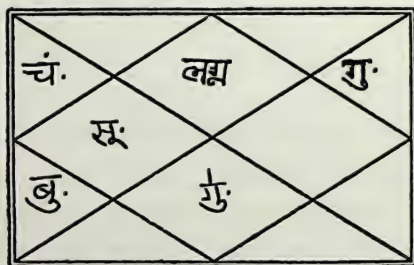 चं. लग्न गु.
सू.
बु.